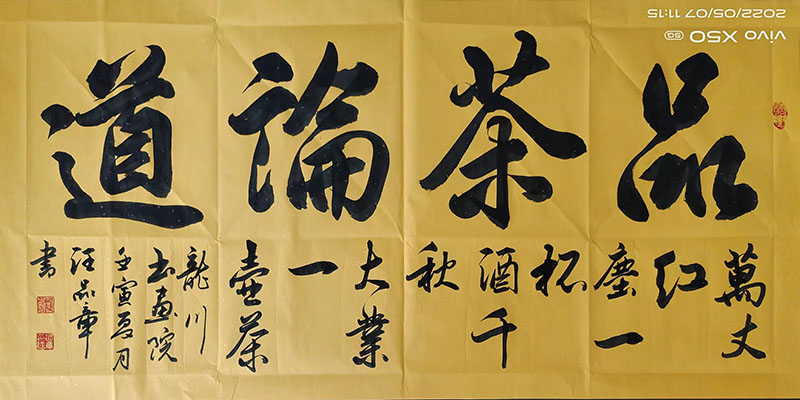 品茶論道
萬丈
红
塵一
杯
酒千
秋
大業
一
壺茶
龍川
书畫院
壬寅夏月
汪品章
書
vivo X50 5G
2022/05/07 11:15